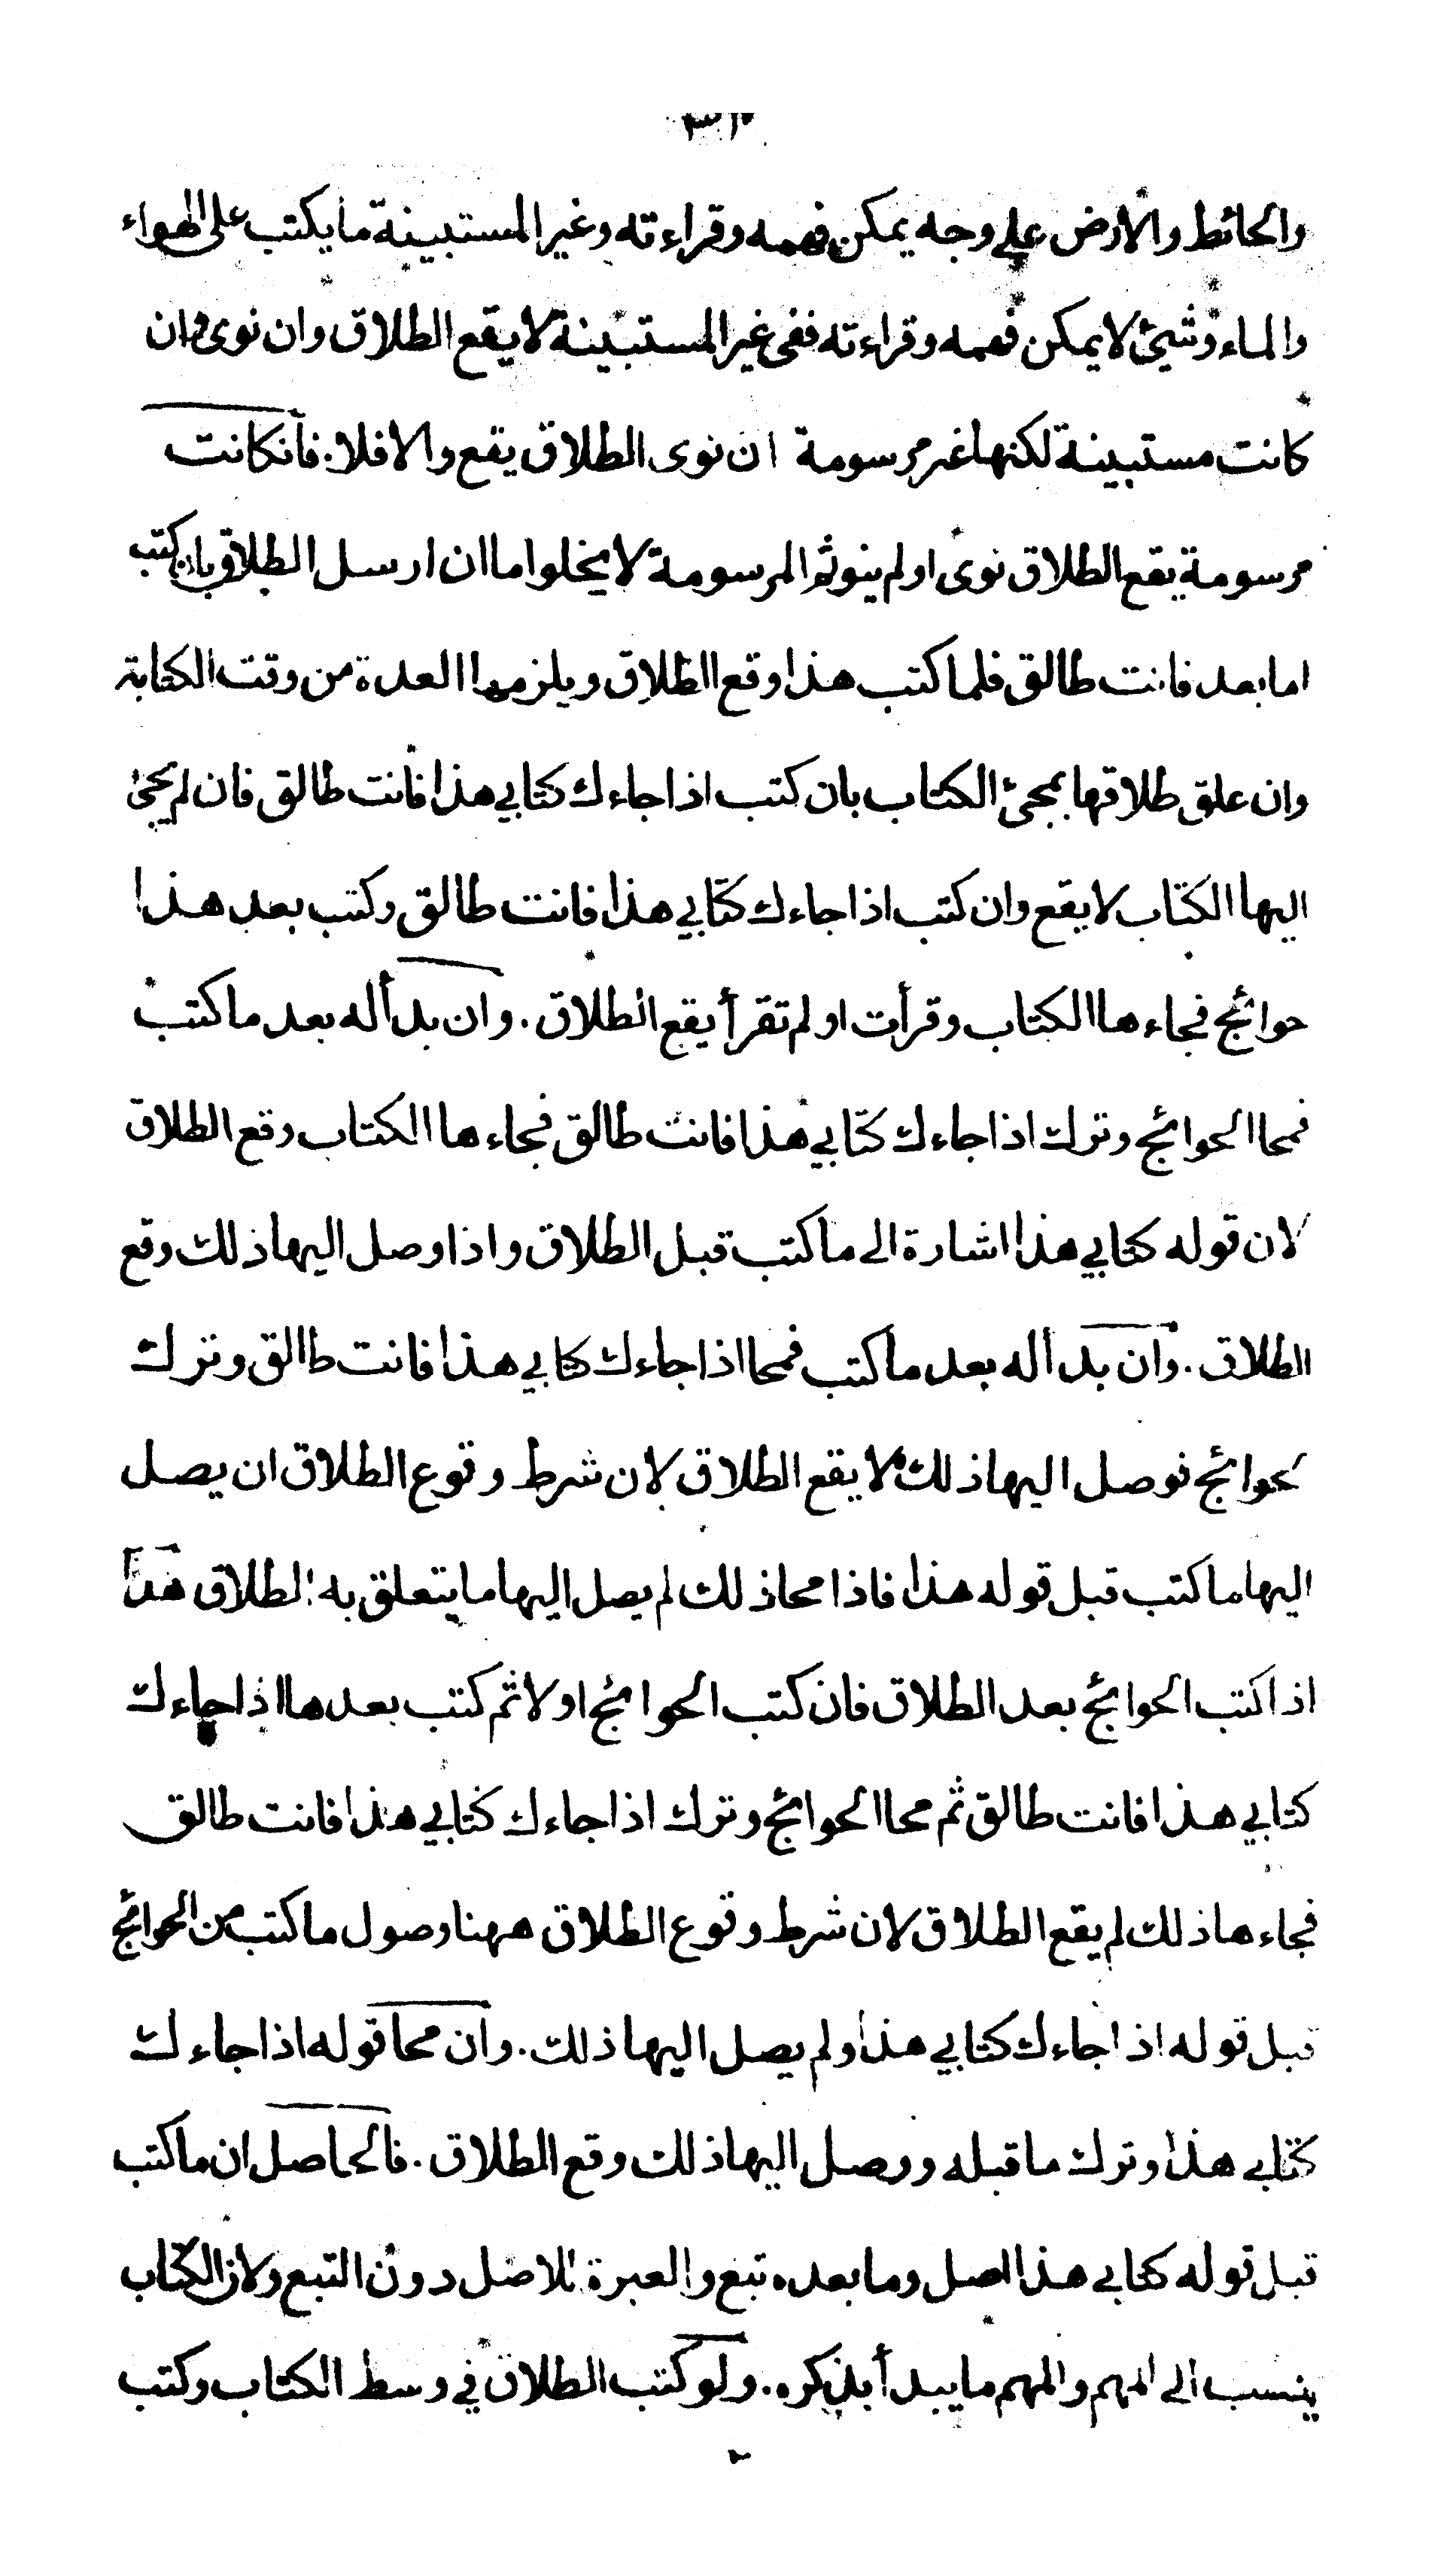 والحائط والارض على وجه يمكن فهمه وقراءته وغير المستبينة ما يكتب على الهواء
والماء وشيئ لا يمكن فهمه وقراءته ففى غير المستبينة لا يقع الطلاق وان نوى وان
كانت مستبينة لكنها غير مرسومة ان نوى الطلاق يقع والا فلا. فان كانت
مرسومة يقع الطلاق نوى او لم ينو ثم المرسومة لا يخلو اما ان ارسل الطلاق بان كتب
اما بعد فانت طالق فلما كتب هذا وقع الطلاق ويلزمها العدة من وقت الكتابة
وان علق طلاقها بمجئ الكتاب بان كتب اذا جاءك كتابي هذا فانت طالق فان لم يجئ
اليها الكتاب لا يقع وان كتب اذا جاءك كتابي هذا فانت طالق وكتب بعد هذا
حوائج فجاءها الكتاب وقرأت او لم تقرأ يقع الطلاق. وان بدأ له بعد ما كتب
فمحا الحوائج وترك اذا جاءك كتابي هذا فانت طالق فجاءها الكتاب وقع الطلاق
لان قوله كتابي هذا اشارة الى ما كتب قبل الطلاق واذا وصل اليها ذلك وقع
الطلاق. وان بدأ له بعد ما كتب فمحا اذا جاءك كتابي هذا فانت طالق وترك
لحوائج فوصل اليها ذلك لا يقع الطلاق لان شرط وقوع الطلاق ان يصل
اليها ما كتب قبل قوله هذا فاذا محا ذلك لم يصل اليها ما يتعلق به الطلاق هذا
اذا كتب الحوائج بعد الطلاق فان كتب الحوائج اولا ثم كتب بعدها اذا جاءك
كتابي هذا فانت طالق ثم محا الحوائج وترك اذا جاءك كتابي هذا فانت طالق
فجاءها ذلك لم يقع الطلاق لان شرط وقوع الطلاق ههنا وصول ما كتب من الحوائج
قبل قوله اذا جاءك كتابي هذا ولم يصل اليها ذلك. وان محا قوله اذا جاءك
كتابي هذا وترك ما قبله ووصل اليها ذلك وقع الطلاق. فالحاصل ان ما كتب
قبل قوله كتابي هذا اصل وما بعده تبع والعبرة للاصل دون التبع ولان الكتاب
ينسب الى المهم والمهم ما يبدأ بذكره. ولو كتب الطلاق في وسط الكتاب وكتب